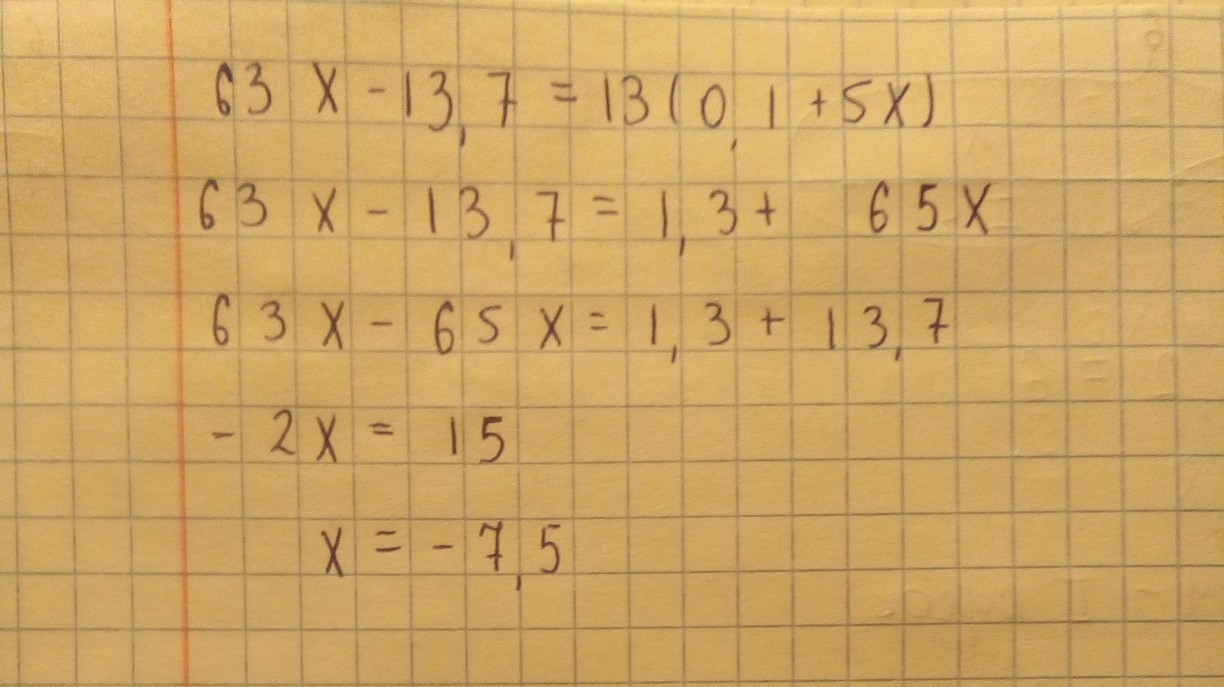 63x-13,7=13(0,1+5x)
63x-13,7=1,3+65x
63x-65x=1,3+13,7
-2x=15
x=-7,5